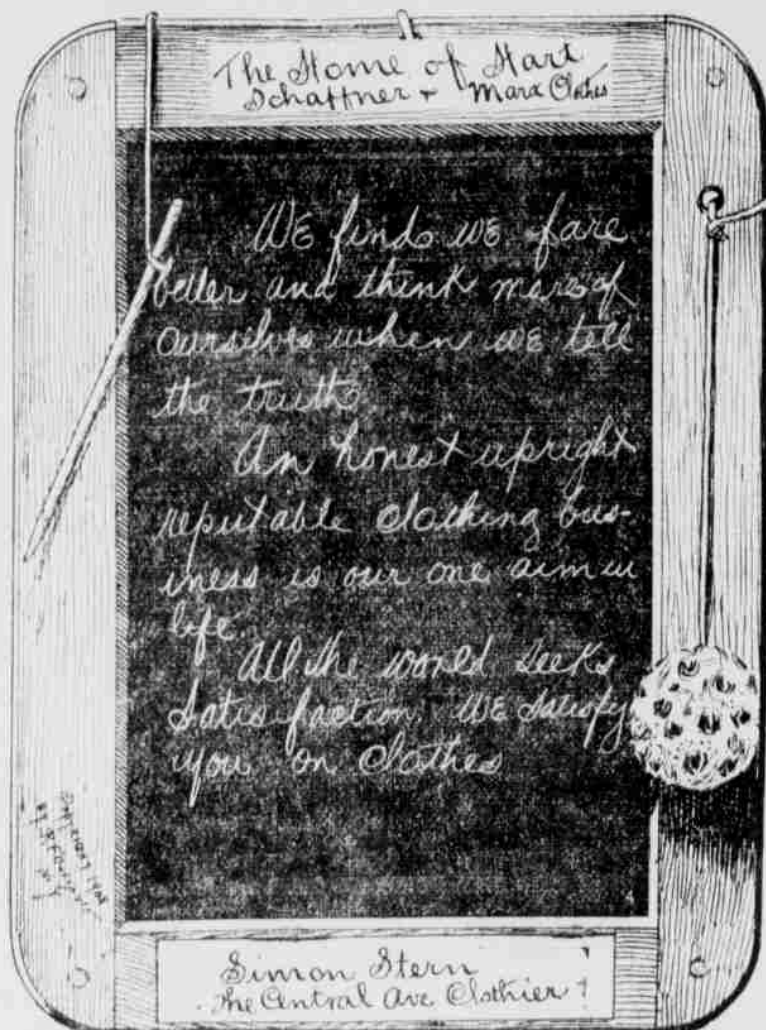 The Home of Hart
Schaffner + Marx Clothes
WE find we fare
better and think more of
ourselves when we tell
the truth.
An honest upright
reputable clothing bus-
iness is our one aim in
life.
All the world seeks
satisfaction. WE satisfy
you on clothes
Copyright 1908
N Y
Simon Stern
The Central Ave Clothier